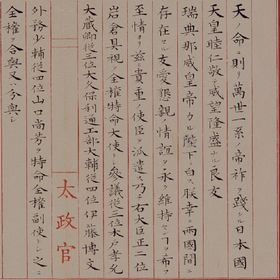 天ノ命ニ則リ萬世一系ノ帝祚ヲ踐シ日本國
天皇睦仁敬テ威望隆盛ナル良友
瑞典那威皇帝カル陛下ニ白ス朕幸ニ両國間ニ
存在スル友愛懇親ノ情誼ヲ永ク維持セント希フノ
至情ヨリ茲ニ貴重ノ使臣ヲ派遣ス乃右大臣正二位
岩倉具視ヲ全權特命大使トシ參議從三位木戸孝允
大藏卿從三位大久保利通工部大輔從四位伊藤博文
太政官
外務少輔從四位山口尚芳ヲ特命全權副使トシ之ニ
全權ヲ合與又分與シ